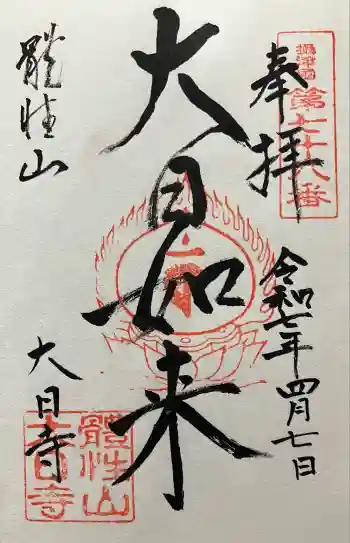 摂津国
第七十八番
奉拝
令和七年四月七日
大日如来
體性山
大日寺
體性山
大日寺